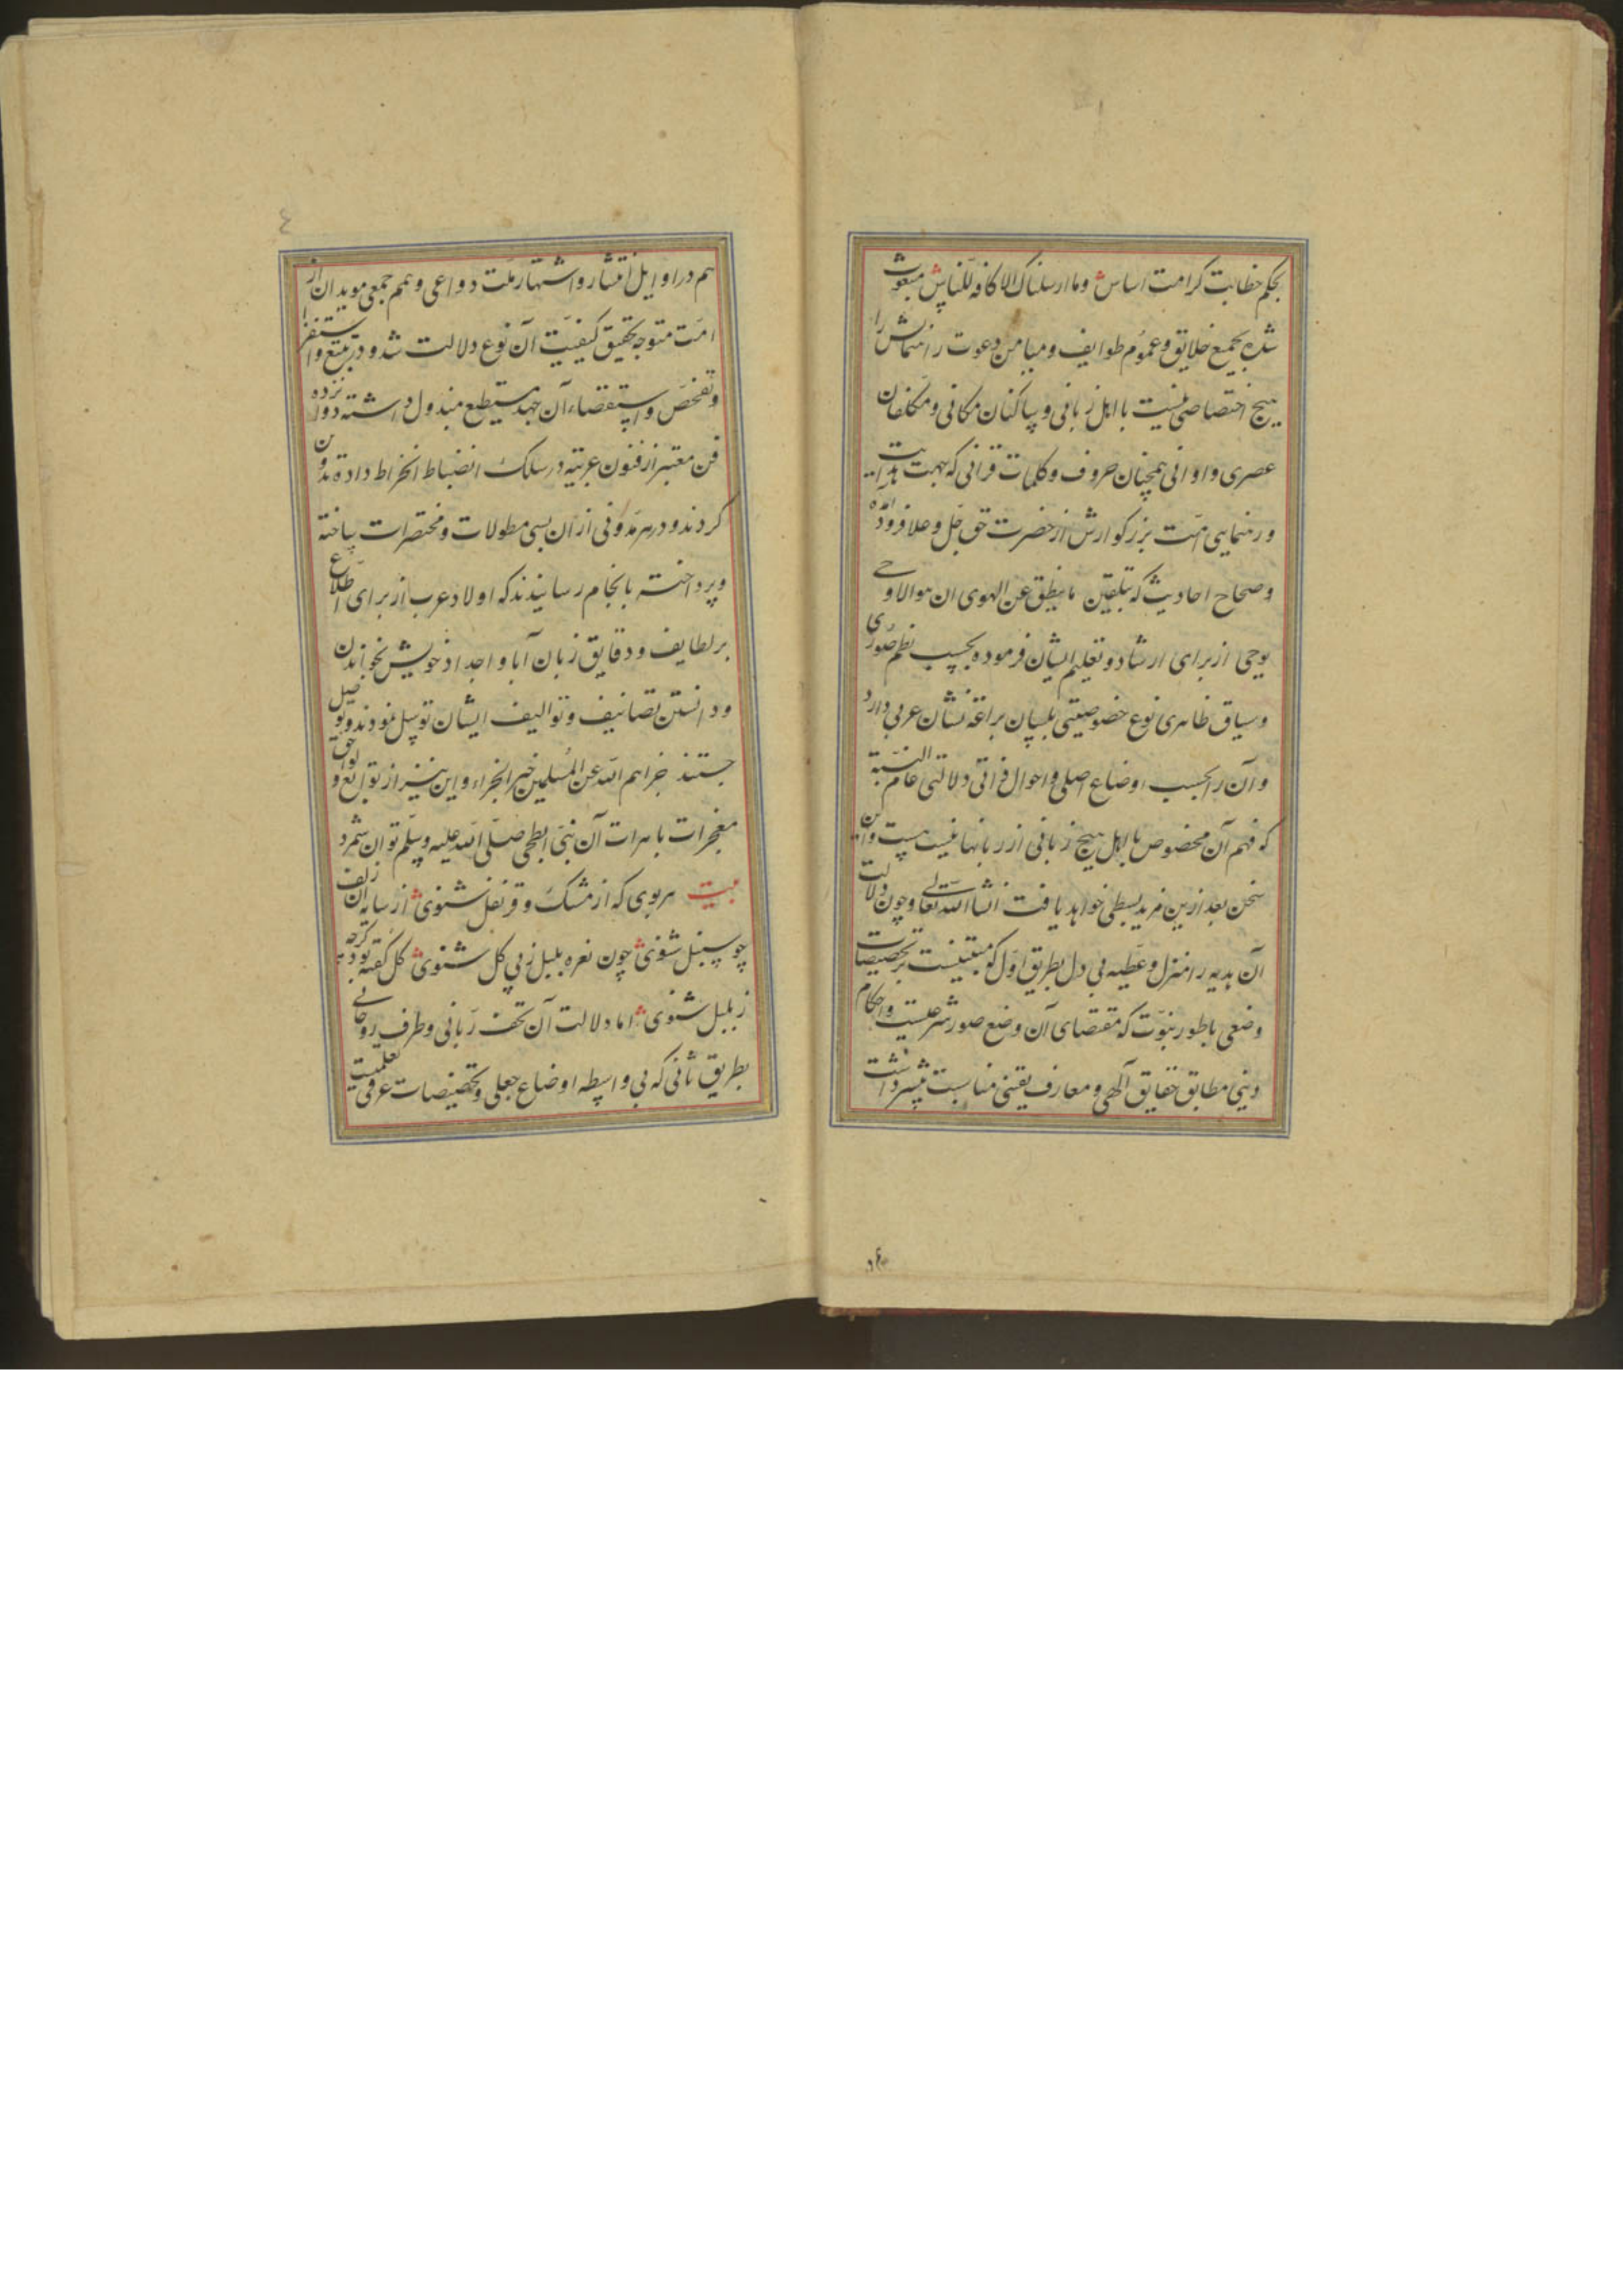 بحکم خطابت کرامت اساس وما ارسلناک الا کافه للناس مبعوث
شده بجمیع خلایق و عموم طوایف و میامن دعوت رهنماش را
هیچ اختصاصی نیست با اهل زبانی و ساکنان مکانی و مکلفان
عصری و اوانی همچنان حروف و کلمات قرآنی که بهمت هدایت
و رهنمایی امت بزرکوارش از حضرت حق جل وعلا فرود آمده
وصحاح احادیث که بتلقین ما ینطق عن الهوی ان هو الا وحی
یوحی از برای ارشاد و تعلیم ایشان فرموده بحسب نظم صوری
وسیاق ظاهری نوع خصوصیتی بلسان براغة نشان عربی دارد
و آن را بحسب اوضاع اصلی و احوال ذاتی دلالتی عام النسبة
که فهم آن مخصوص با اهل هیچ زبانی از زبانها نیست و این
سخن بعد ازین مزید بسطی خواهد یافت انشاالله تعالی و چون دلالت
آن هدیه را منزل و عطیه بی دل بطریق اول که مبتنیست بر تخصیصات
وضعی باطور نبوت که مقتضای آن وضع صور شرعیست و احکام
دینی مطابق حقایق الهی و معارف یقینی مناسبت بیشتر داشت
هم در اوایل انتشار و اشتهار ملت دواعی و همم جمعی مویدان از
امت متوجه تحقیق کیفیت آن نوع دلالت شد و در تتبع و استقرا
و تفحص و استقصاء آن جهد مستطیع مبذول داشته دوازده
فن معتبر از فنون عربیه در سلک انضباط انخراط داده مدون
کردند و در هر مدونی از آن بسی مطولات و مختصرات ساخته
و پرداخته بانجام رسانیدند که اولاد عرب از برای اطلاع
بر لطایف و دقایق زبان آبا و اجداد خویش بخواندن
و دانستن تصانیف و توالیف ایشان توسل نمودند و توصل
جستند جزاهم الله عن المسلمین خیر الجزاء و این نیز از توابع و لواحق
معجزات باهرات آن نبی ابطحی صلی الله علیه وسلم توان شمرد
بیت هر بوی که از مشک و قرنفل شنوی از سایه آن زلف
چو سنبل شنوی چون نغمه بلبل ز پی کل شنوی کل کفته بود کرچه
ز بلبل شنوی اما دلالت آن تحف ربانی و طرف روحانی
بطریق ثانی که بی واسطه اوضاع جعلی و تخصیصات عرفی